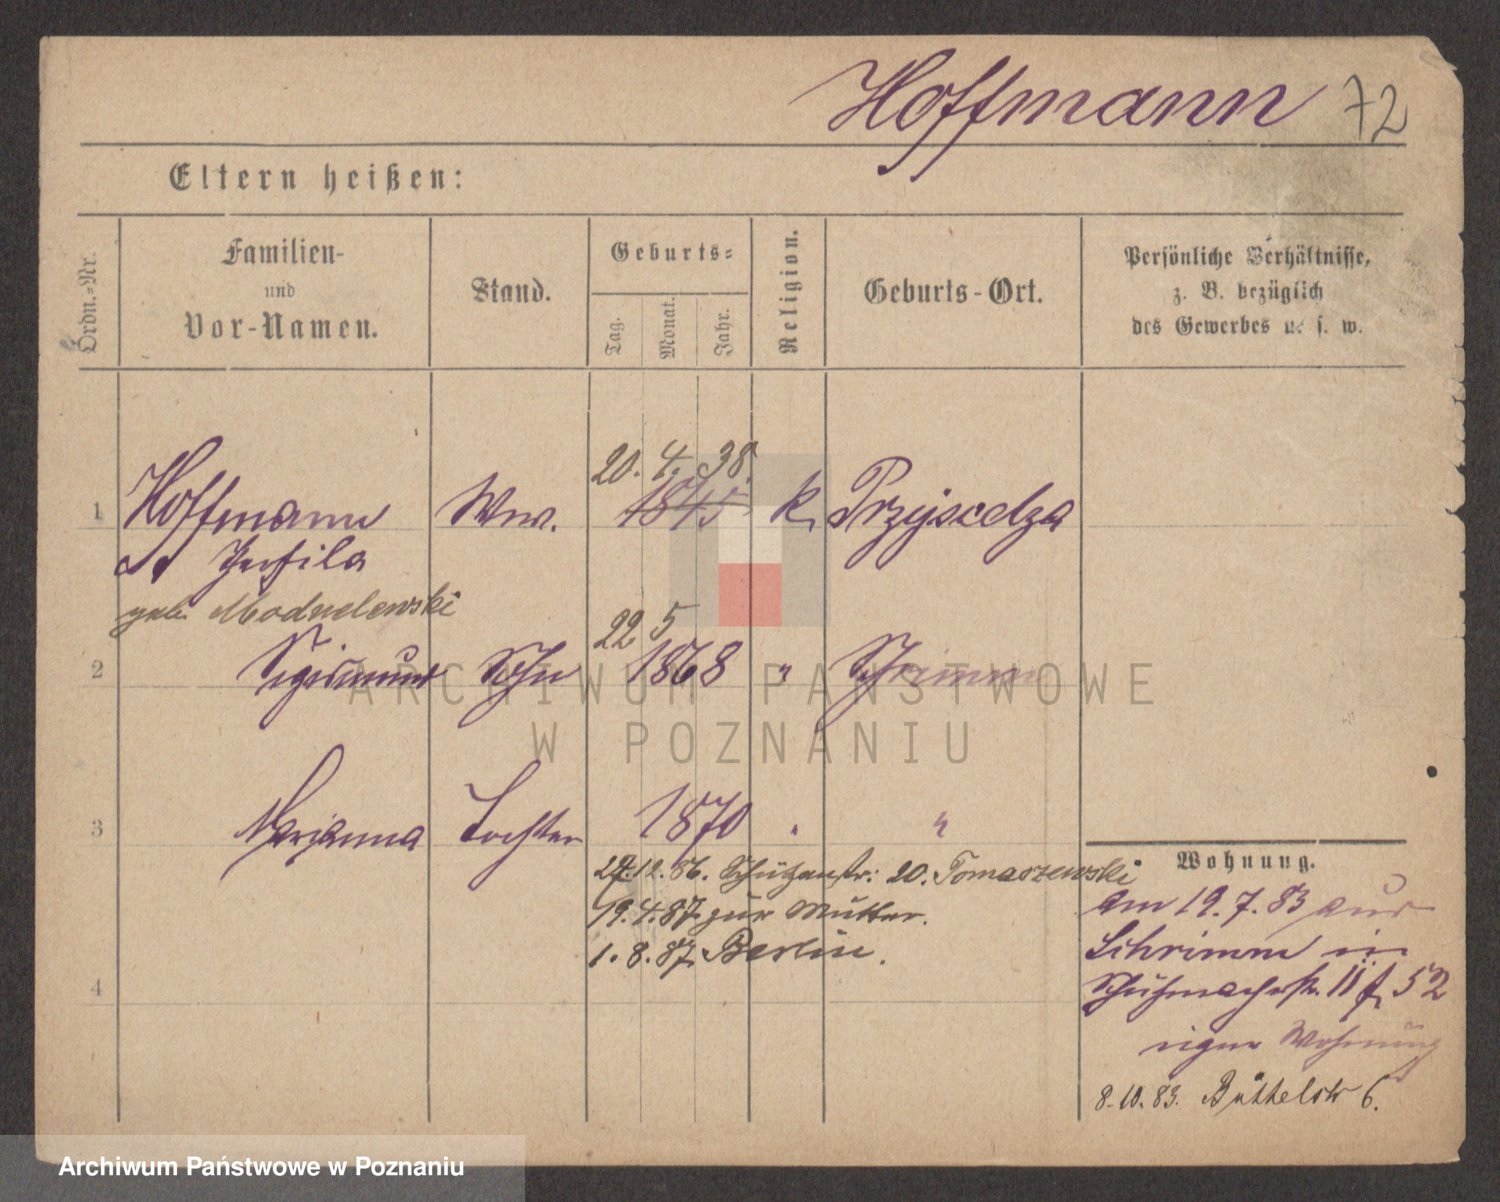 Hoffmann 72
Eltern heißen:
Ordn.-Nr.
Familien-
und
Vor-Namen.
Stand.
Geburts-
Tag.
Monat.
Jahr.
Religion.
Geburts-Ort.
Persönliche Verhältnisse,
z. B. bezüglich
des Gewerbes u. s. w.
20. 4. 38.
1 Hoffmann Ww. 1845 k.
geb. Modrelewski
22 5
2 Sigismund Sohn 1868 " Schrimm
ARCHIWUM PAŃSTWOWE
W POZNANIU
3 Marjanna Tochter 1870 " "
Wohnung.
27.12.86. Schützenstr: 20. Tomaszewski
19.4.87. zur Mutter.
1.8.87. Berlin.
4
am 19.7.83 aus
Schrimm in
Schuhmacherstr. 11 f. 52
eigne Wohnung
8.10.83. Büttelstr 6.
Archiwum Państwowe w Poznaniu